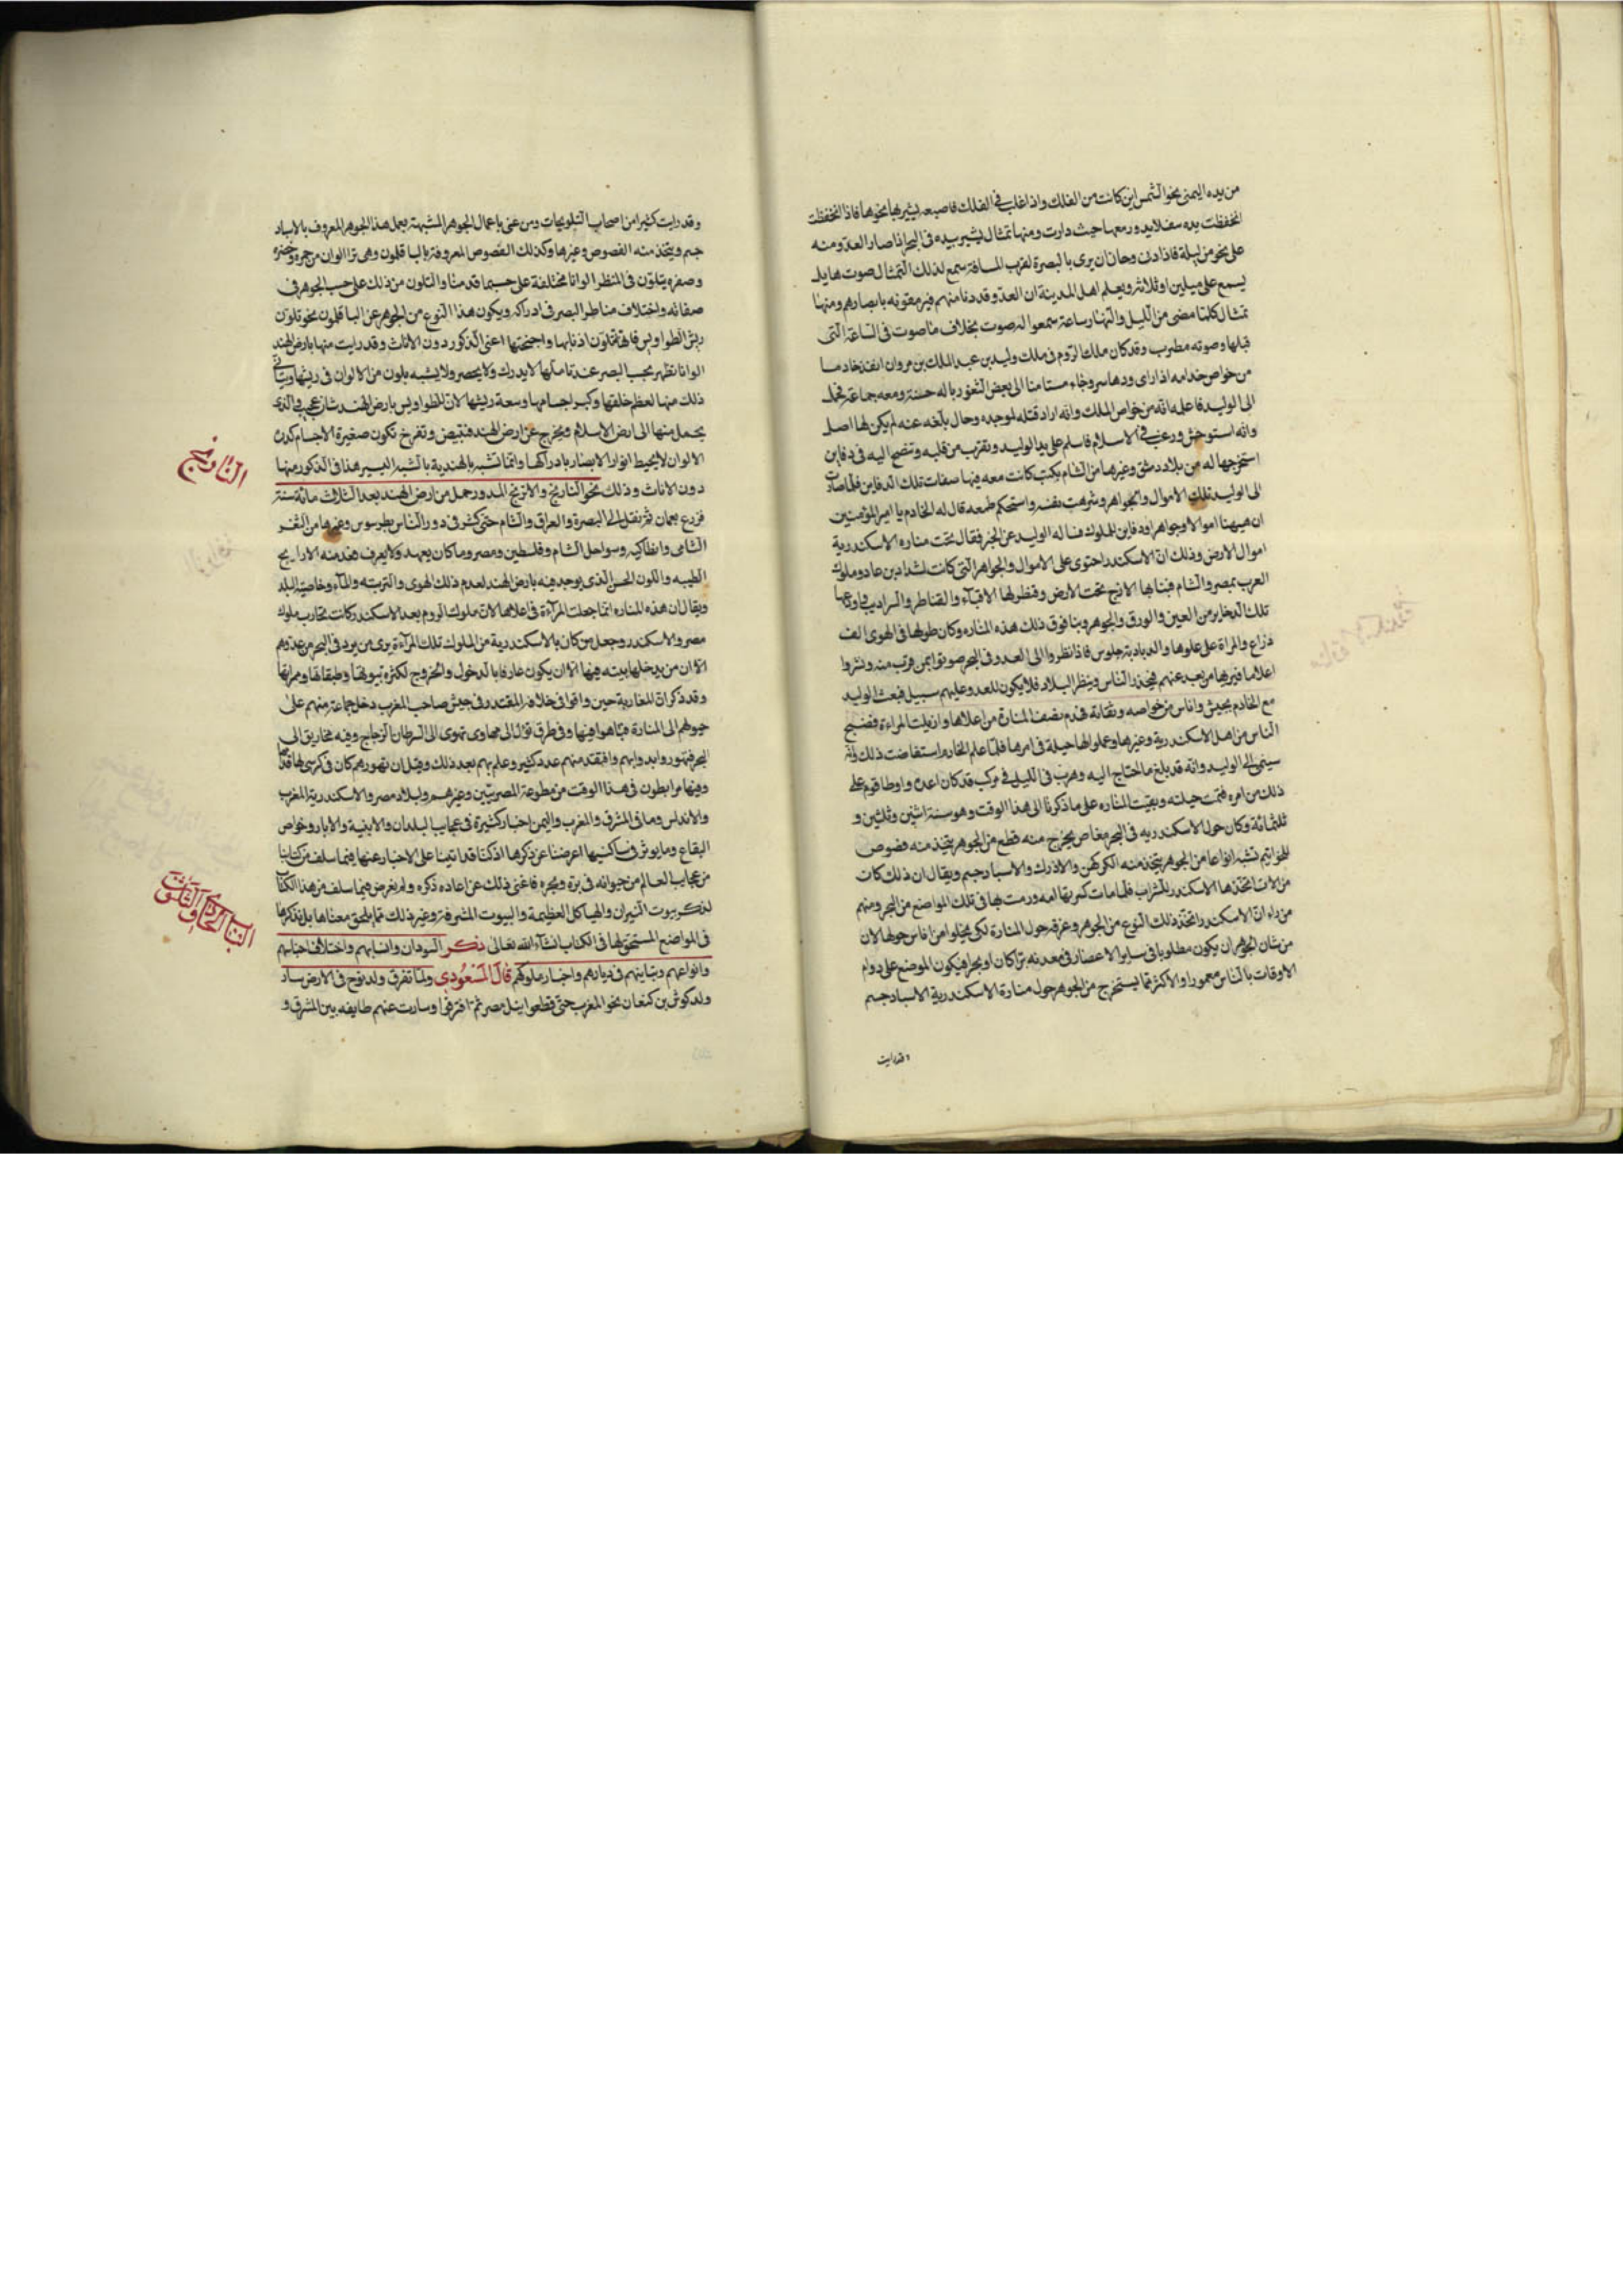 من يده اليمنى نحو الشمس اين كانت من الفلك واذا غلب في الفلك فاصبعه يشير بها نحوها فاذا انخفظت
انخفظت يده سفلا يدور معها حيث دارت ومنها تمثال يشير بيده في البحر اذا صار العدو منه
على نحو من ليلة فاذا دنا وحان ان يرى بالبصرة لقرب المسافة سمع لذلك التمثال صوت هايل
يسمع على ميلين او ثلاثة ويعلم اهل المدينة ان العدو قد دنا منهم فيرمقونه بابصارهم ومنها
تمثال كلما مضى من الليل والنهار ساعة سمعوا له صوت بخلاف ما صوت في الساعة التي
قبلها وصوته مطرب وقد كان ملك الروم في ملك وليد بن عبد الملك بن مروان انفذ خادما
من خواص خدامه اذا راى ودها سر وجاء مستامنا الى بعض الثغور باله حسنة ومعه جماعة فحمل
الى الوليد فاعلمه انه من خواص الملك وانه اراد قتله لموجده وحال بلغه عنه لم يكن لها اصل
وانه استوحش ورغب في الاسلام فاسلم على يد الوليد وتقرب من قلبه وتنصح اليه في دفاين
استخرجها له من بلاد دمشق وغيرها من الشام بكتب كانت معه فيها صفات تلك الدفاين فلما صارت
الى الوليد تلك الاموال والجواهر وشرهت نفسه واستحكم طمعه قال له الخادم يا امير المؤمنين
ان ههنا اموالا وجواهر ودفاين للملوك فساله الوليد عن الخبر فقال تحت مناره الاسكندرية
اموال الارض وذلك ان الاسكندر احتوى على الاموال والجواهر التي كانت لشداد بن عاد وملوك
العرب بمصر والشام فبنا لها الازج تحت الارض وقنطر لها الاقباء والقناطر والسراديب واودعها
تلك الذخاير من العين والورق والجوهر وبنا فوق ذلك هذه المناره وكان طولها في الهوى الف
ذراع والمراة على علوها والديادبة جلوس فاذا نظروا الى العدو في البحر صوتوا بمن قرب منه ونشروا
اعلاما فيرها من بعد عنهم فيحذر الناس وينظر البلاد فلا يكون للعدو عليهم سبيل فبعث الوليد
مع الخادم بجيش واناس من خواصه وثقاته فهدم نصف المنارة من اعلاها وازيلت المراءة فضج
الناس من اهل الاسكندرية وغيرها وعملوا انها حيلة في امرها فلما علم الخادم استفاضت ذلك وانه
سينمى الى الوليد وانه قد بلغ ما احتاج اليه وهرب في الليل في مركب قد كان اعده واوطا قوم على
ذلك من امره فتمت حيلته وبقيت المناره على ما ذكرنا الى هذا الوقت وهو سنة اثنين وثلثين و
ثلثمائة وكان حول الاسكندريه في البحر مغاص يخرج منه قطع من الجوهر يتخذ منه فصوص
للخواتيم تشبه انواعا من الجوهر يتخذ منه الكركهن والاذرك والاسبادجم ويقال ان ذلك كان
من الات اتخذها الاسكندر للشراب فلما مات كسرتها امه ورمت بها في تلك المواضع من البحر ومنهم
من راء ان الاسكندر اتخذ ذلك النوع من الجوهر وغرقه حول المنارة لكي لا يخلوا من اناس حولها لان
من شان الجوهر ان يكون مطلوبا في ساير الاعصار في معدنه برا كان او بحرا فيكون الموضع على دوام
الاوقات بالناس معمورا والاكثر مما يستخرج من الجوهر حول منارة الاسكندرية الاسبادجم
وقد رايت
وقد رايت كثيرا من اصحاب التلويحات ومن عنى باعمال الجوهر المشبهة يعمل هذا الجوهر المعروف بالاسباد
جم ويتخذ منه الفصوص وغيرها وكذلك الفصوص المعروفة بالباقلمون وهى ترا الوان من حمره وخضره
وصفره يتلون في المنظر الوانا مختلفة على حسب ما قدمنا والتلون من ذلك على حسب الجوهر في
صفائه واختلاف مناظر البصر في ادراكه ويكون هذا النوع من الجوهر عن الباقلمون نحو تلون
ريش الطواويس فانها تتلون اذنابها واجنحتها اعنى الذكور دون الاناث وقد رايت منها بارض الهند
الوانا تظهر بحب البصر عند تاملها لا يدرك ولا يحصر ولا يشبه بلون من الالوان في ريشها ويتاتى
ذلك منها لعظم خلقها وكبر اجسامها وسعة ريشها لان للطواويس بارض الهند شان عجيب والذى
يحمل منها الى ارض الاسلام ويخرج عن ارض الهند فتبيض وتفرخ تكون صغيرة الاجسام كدرة
الالوان لا يحيط انوار الابصار بادراكها وانما تشبه بالهندية بالشبه اليسير هذا في الذكور منها
دون الاناث وذلك نحو النارنج والاترنج المدور حمل من ارض الهند بعد الثلاث مائة سنة
فزرع بعمان ثم نقل الى البصرة والعراق والشام حتى كثر في دور الناس بطرسوس وغيرها من الثغر
الشامى وانطاكيه وسواحل الشام وفلسطين ومصر وما كان يعهد ولا يعرف فعدمنه الارايج
الطيبه واللون الحسن الذى يوجد فيه بارض الهند لعدم ذلك الهوى والتربته والماء وخاصية البلد
ويقال ان هذه المناره انما جعلت المرآة في اعلاها لان ملوك الروم بعد الاسكندر كانت تحارب ملوك
مصر والاسكندر وجعل من كان بالاسكندرية من الملوك تلك المرآة يرى من يرد في البحر من عدوهم
الا ان من يدخلها يتيه فيها الا ان يكون عارفا بالدخول والخروج لكثرة بيوتها وطبقاتها وممراتها
وقد ذكر ان المغاربة حين وافوا في خلافة المقتدر في جيش صاحب المغرب دخل جماعة منهم على
خيولهم الى المنارة فتاهوا فيها وفي طرق تؤل الى مهاوى تهوى الى السرطان الزجاج وفيه مخاريق الى
البحر فتهوروا بدوابهم وافتقد منهم عدد كثير وعلم بهم بعد ذلك وقيل ان تهورهم كان في كرسى لها قدامها
وفيها مرابطون في هذا الوقت من مطوعة المصريين وغيرهم ولبلاد مصر والاسكندرية المغرب
والاندلس وما في المشرق والمغرب واليمن اخبار كثيرة في عجايب البلدان والابنية والابار وخواص
البقاع وما يوثر في ساكنيها اعرضنا عن ذكرها اذ كنا قد اتينا على الاخبار عنها فيما سلف من كتابنا
من عجايب العالم من حيوانه في بره وبحره فاغنى ذلك عن اعاده ذكره ولم نعرض فيما سلف من هذا الكتاب
لذكر بيوت النيران والهياكل العظيمة والبيوت المشرفة وغير ذلك مما لحق معناها بل نذكرها
في المواضع المستحق لها في الكتاب انشاء الله تعالى ذكر السودان وانسابهم واختلاف اجناسهم
وانواعهم وتباينهم في ديارهم واخبار ملوكهم قال المسعودى ولما تفرق ولد نوح في الارض سار
ولد كوش بن كنعان نحو المغرب حتى قطعوا نيل مصر ثم افترقوا وسارت عنهم طايفه بين المشرق و
النارنج
الباب الحادى والثلاثون